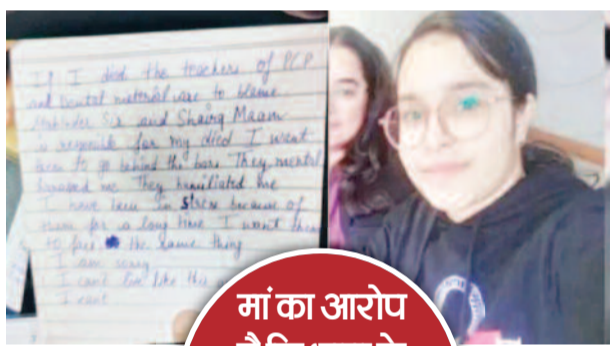 If I died the teachers of PCP
and Dental material are to blame
Mahinder Sir and Shairg Maam
is responsible for my died I want
them to go behind the bars They mental
harassed me They humiliated me
I have been in stress because of
them for a long time I want them
to feel the same thing
I am sorry
I can't live like this
I cant
मां का आरोप